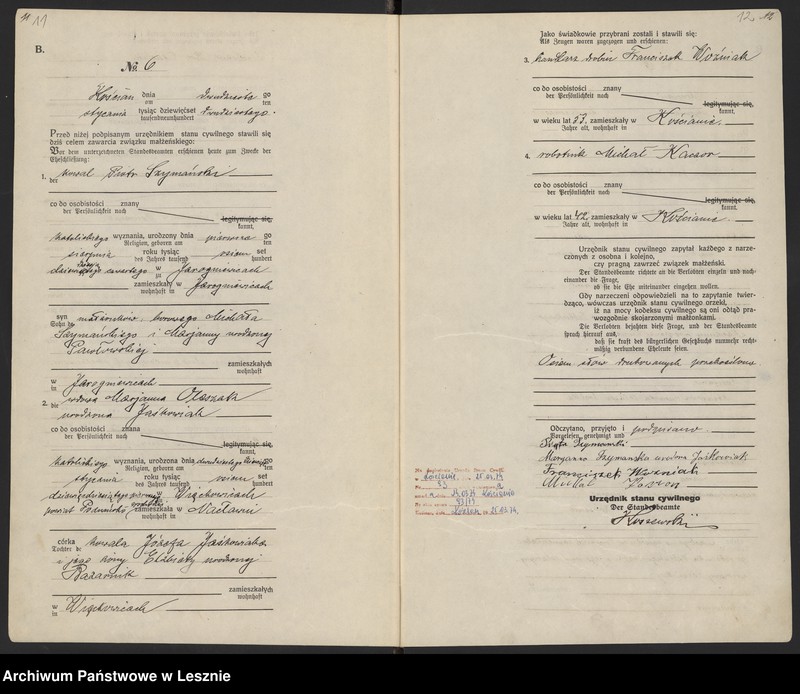 11
B.
№ 6
Kościan dnia dwudziestego
am ten
stycznia tysiąc dziewięćset dwudziestego.
tausendneunhundert
Przed niżej podpisanym urzędnikiem stanu cywilnego stawili się
dziś celem zawarcia związku małżeńskiego:
Vor dem unterzeichneten Standesbeamten erschienen heute zum Zwecke der
Eheschließung:
1. kowal Piotr Szymański
der
co do osobistości znany
der Persönlichkeit nach
legitymując się,
kannt,
katolickiego wyznania, urodzony dnia pierwszego
Religion, geboren am ten
sierpnia roku tysiąc osiemset
des Jahres tausend hundert
czwartego w Jarogniewicach
zu
zamieszkały w Jarogniewicach
wohnhaft in
syn małżonków Michała
Sohn
Szymańskiego i Marjanny urodzonej
Pawłowskiej
zamieszkałych
wohnhaft
w Jarogniewicach
in
2. wdowa Marjanna
die
urodzona Jaśkowiak
co do osobistości znany
der Persönlichkeit nach
legitymując się,
kannt,
katolickiego wyznania, urodzona dnia dwudziestego
Religion, geboren am ten
stycznia roku tysiąc osiemset
des Jahres tausend hundert
w Więckowicach
powiat zamieszkała w Nacławiu
wohnhaft in
córka kowala Józefa Jaśkowiaka
Tochter
i jego żony Elżbiety urodzonej
Bazarnik
zamieszkałych
wohnhaft
w Więckowicach
in
12
Jako świadkowie przybrani zostali i stawili się:
Als Zeugen waren zugezogen und erschienen:
3. Franciszek Woźniak
co do osobistości znany
der Persönlichkeit nach
legitymując się,
kannt,
w wieku lat 53, zamieszkały w Kościanie.
Jahre alt, wohnhaft in
4. robotnik Michał Kaczor
co do osobistości znany
der Persönlichkeit nach
legitymując się,
kannt,
w wieku lat 42, zamieszkały w Kościanie.
Jahre alt, wohnhaft in
Urzędnik stanu cywilnego zapytał każdego z narze-
czonych z osobna i kolejno,
czy pragną zawrzeć związek małżeński.
Der Standesbeamte richtete an die Verlobten einzeln und nach-
einander die Frage,
ob sie die Ehe miteinander eingehen wollen.
Gdy narzeczeni odpowiedzieli na to zapytanie twier-
dząco, wówczas urzędnik stanu cywilnego orzekł,
iż na mocy kodeksu cywilnego są oni obtąd pra-
wozgodnie skojarzonymi małżonkami.
Die Verlobten bejahten diese Frage, und der Standesbeamte
sprach hierauf aus,
daß sie kraft des bürgerlichen Gesetzbuchs nunmehr recht-
mäßig verbundene Eheleute seien.
Osiem słów drukowanych przekreślono
Odczytano, przyjęto i podpisano.
Vorgelesen, genehmigt und
Szymański
Maryanna Szymańska wdowa Jaśkowiak
Franciszek Woźniak
Michał Kaczor
Urzędnik stanu cywilnego
Der Standesbeamte
Archiwum Państwowe w Lesznie